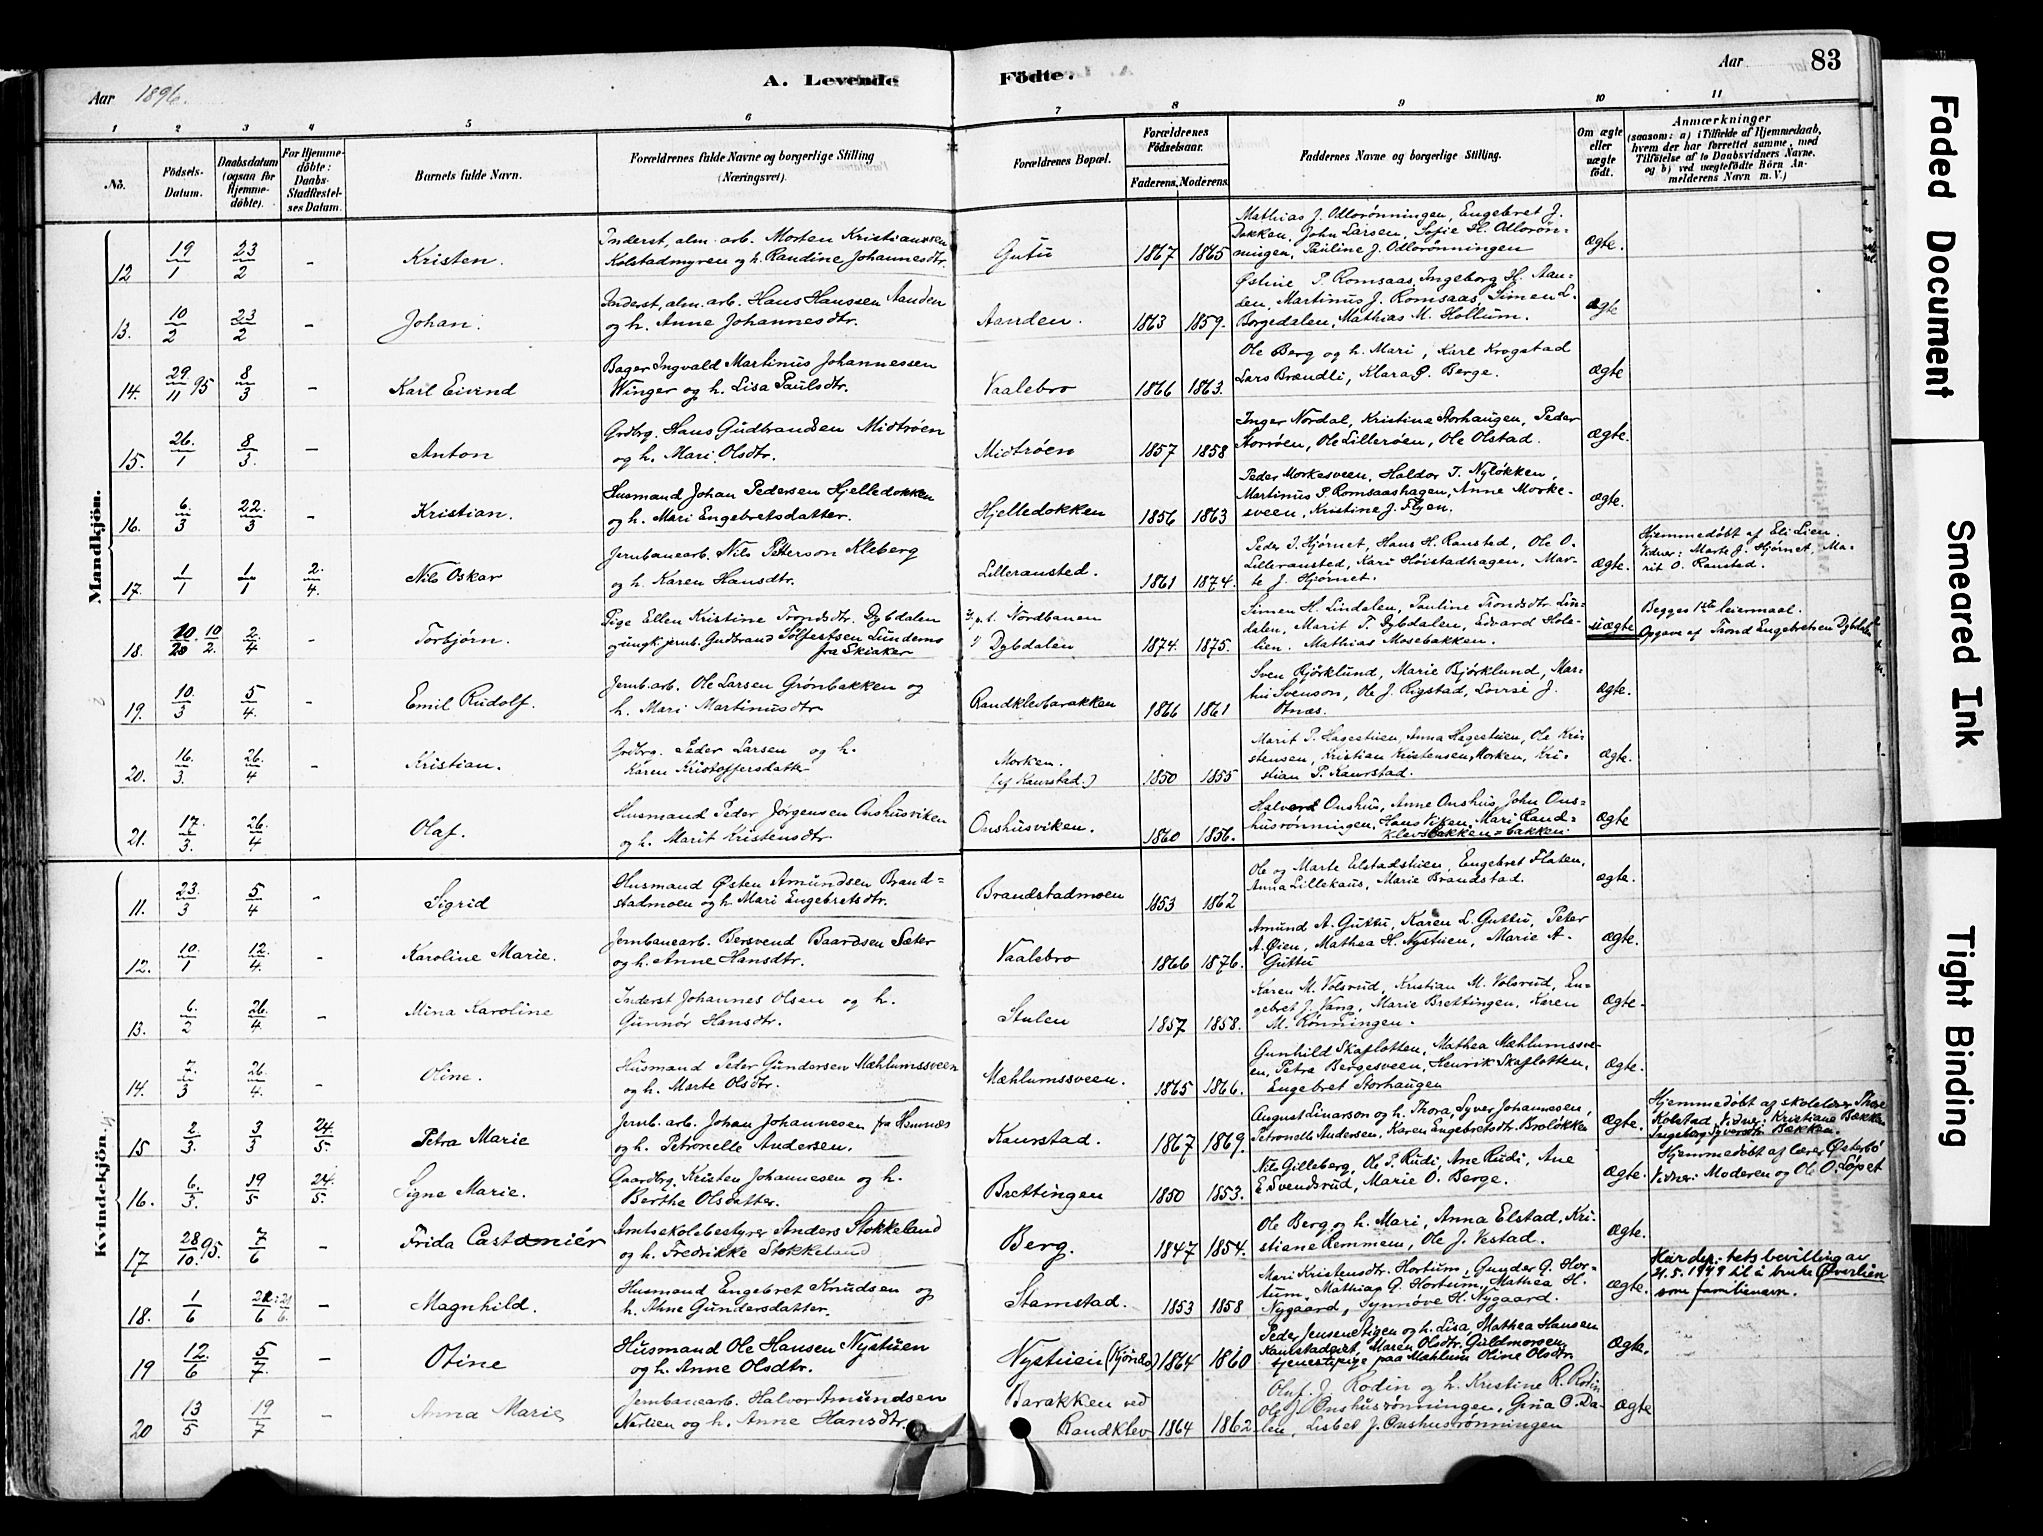 Aar 1896.
A. Levende Födte.
Aar
83
1 2 3 4 5 6 7 8 9 10 11
No.
Födsels-Datum.
Daabsdatum (ogsaa for Hjemme-döbte).
For Hjemme-döbte: Daabs-Stadfæstel-ses Datum.
Barnets fulde Navn.
Forældrenes fulde Navne og borgerlige Stilling (Næringsvei).
Forældrenes Bopæl.
Forældrenes Födselsaar.
Faderens. Moderens.
Faddernes Navne og borgerlige Stilling.
Om ægte eller uægte födt.
Anmærkninger (saasom: a) i Tilfælde af Hjemmedaab, hvem der har forrettet samme, med Tilföielse af to Daabsvidners Navne, og b) ved uægtefödte Börn An-melderens Navn m. V.)
Mandkjön.
12 19/1 23/2 - Kristen. Inderst, alm. arb. Morten Kristianssen
Kolstadmyren og h. Randine Johannesdtr. Gutu 1867 1865 Mathias J. Odlorønningen, Engebret J.
Dokken, John Larsen, Sofie H. Odlorøn-
ningen, Pauline J. Odlorønningen ægte.
13. 10/2 23/2 - Johan. Inderst, alm. arb. Hans Hanssen Aanden
og h. Anne Johannesdtr. Aanden. 1863 1859. Østine P. Romsaas, Ingeborg H. Aan-
den, Martinus J. Romsaas, Simen L.
Borgedalen, Mathias M. Hollum. ægte
14. 29/11 95 8/3 - Karl Eivind Bager Ingvald Martinus Johannessen
Winger og h. Lisa Paulsdtr. Vaalebro 1866 1863. Ole Berg og h. Mari, Karl Krogstad
Lars Brændli, Klara P. Berge. ægte
15. 26./1 8/3. - Anton Grdbrg. Hans Gudbrandsen Midtrøen
og h. Mari Olsdtr. Midtrøen 1857 1858 Inger Nordal, Kristine Storhaugen, Peder
Storrøen, Ole Lillerøen, Ole Olstad. ægte.
16. 6./3 22./3 - Kristian. Husmand Johan Pedersen Hjelledokken
og h. Mari Engebretsdatter. Hjelledokken 1856 1863 Peder Morkesveen, Haldor T. Nyløkken,
Martinus P. Romsaashagen, Anne Morke-
sveen, Kristine J. Flyen. ægte.
17. 1/1 1/1 2./4. Nils Oskar Jernbanearb. Nils Petterson Kleberg
og h. Karen Hansdtr. Lilleransted. 1861 1874. Peder J. Hjørnet, Hans H. Ransted, Ole O.
Lilleransted, Kari Høistadhagen, Mar-
te J. Hjørnet. ægte. Hjemmedøbt af Eli Lien
Vidner: Marte J. Hjørnet, Ma-
rit O. Ransted.
18. 10/2. 2./4 - Torbjørn. Pige Ellen Kristine Trondsdtr. Dybdalen
og ungk. jernb. Gudbrand Sølfestsen Lundemo
fra Skiaker Nordbanen
Dybdalen 1874. 1875. Simen H. Lindalen, Pauline Trondsdtr. Lin-
dalen, Marit T. Dybdalen, Edvard Hole-
lien. Mathias Mosebakken. uægte Begges 1ste leiermaal.
Opgave af Trond Engebretsen Dybdalen
19. 10./3 5/4. - Emil Rudolf. Jernb. arb. Ole Larsen Grønbakken og
h. Mari Martinusdtr Randklevbarakken 1866 1861 Sven Bjørklund, Marie Bjørklund, Mar-
Svenson, Ole J. Rigstad, Lovise J.
Otnæs. ægte.
20. 16./3. 26./4 - Kristian. Grdbrg. Peder Larsen og h.
Karen Kristoffersdatter Morken.
(af Kaurstad.) 1850 1855 Marit P. Hagestuen, Anna Hagestuen, Ole Kris
stensen, Kristian Kristensen Morken, Kri-
stian P. Kaurstad. ægte.
21. 17./3. 26./4 - Olaf. Husmand Peder Jørgensen Onshusviken
og h. Marit Kristensdtr Onshusviken. 1860 1856. Halvord Onshus, Anne Onshus, John Ons-
husrønningen, Hans Viken, Mari Rand-
klevbakken ægte
Kvindekjön.
11. 23./3 5/4 - Sigrid Husmand Østen Amundsen Brand-
stadmoen og h. Mari Engebretsdtr. Brandstadmoen 1853 1862 Ole og Marte Elstadstuen, Engebret Flaten,
Anna Lillekaus, Marie Brandstad. ægte.
12. 10./1 12./4. - Karoline Marie. Jernbanearb. Bersvend Baardsen Sæter
og h. Anne Hansdtr. Vaalebro 1866 1876. Amund A. Guttu, Karen L. Guttu, Peter
A. Øien, Mathea H. Nystuen, Marie A.
Guttu ægte.
13. 6./2 26./4 - Mina Karoline Inderst Johannes Olsen og h.
Gunnor Hansdtr. Stulen 1857 1858. Karen M. Volsrud, Kristian M. Volsrud, En-
gebret J. Vang, Marie Brettingen, Karen
M. Rønningen. ægte.
14. 7./3 26./4. - Oline. Husmand Peder Gundersen Mæhlumssveen
og h. Marte Olsdtr. Mæhlumssveen. 1865 1866. Gunhild Skaflotten, Mathea Mæhlumssve-
en, Petra Bergesveen, Henrik Skaflotten,
Engebret Storhaugen ægte.
15 2/3. 3/3 24./5. Petra Marie Jernb. arb. Johan Johannesen fra Hamnæs
og h. Petronelle Andersen. Kaurstad. 1867 1869. August Linarson og h. Thora, Syver Johannesen,
Petronelle Andersen, Karen Engebretsdtr Broløkken ægte. Hjemmedøbt af skolelærer Thore
Kolstad, Vidner: Kristiane Bækken
Ingeborg Syversdtr. Bækken.
16. 6./3. 19/5 24./5. Signe Marie. Gaardbrg. Kristen Johannesen og h.
Berthe Olsdatter. Brettingen 1850 1853. Nils Gilleberg, Ole P. Rudi, Ane Rudi, Ane
E Svendsrud, Marie O. Berge. ægte. Hjemmedøbt af lærer Østerbø
Vidner: Moderen og Ole O. Løpet
17 28/10. 95. 7/6 - Frida Castomiér Amtsskolebestyrer Anders Stokkeland
og h. Fredrikke Stokkeland Berg. 1847 1854. Ole Berg og h. Mari, Anna Elstad, Kri-
stiane Remmem, Ole J. Vestad. ægte.
18. 1/6 21/6 - Magnhild. Husmand Engebret Knudsen og
h. Ane Gundersdatter. Stamstad. 1853 1858 Mari Kristensdtr. Hortum, Gunder G. Hor-
tum, Mathias G. Hortum, Mathea H.
Nygaard, Synnøve H. Nygaard. ægte. Har dep:tets bevilling av
21.5.1949 til å bruke Øverlien
som familienavn.
19 12./6 5/7. - Otine Husmand Ole Hansen Nystuen
og h. Anne Olsdtr. Nystuen (Kjønaas) 1864 1860 Peder Jensen Stigen og h. Lisa, Mathea Hansen
Kaurstadeiet, Maren Olsdtr. Guldmoreen
tjenestepige paa Mæhlum Oline Olsdtr ægte.
20 13/5 19/7 - Anna Marie Jernbanearb. Halvor Amundsen
Nerlien og h. Anne Hansdtr. Barakken ved
Randklev 1864 1862 Oluf J. Rodin og h. Kristine R. Rodin
Ole J. Onshusrønningen, Gina O. Da-
len, Lisbet J. Onshusrønningen ægte
Faded Document
Smeared Ink
Tight Binding